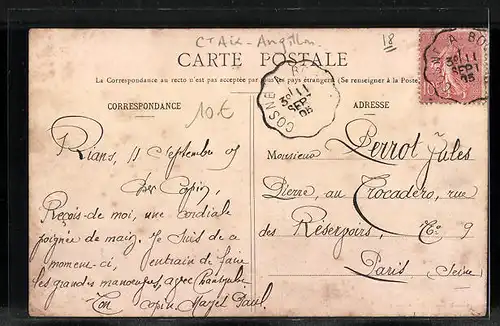 Ct Aix-Angillon
18
CARTE POSTALE
La Correspondance au recto n'est pas acceptée par tous les pays étrangers (Se renseigner à la Poste)
CORRESPONDANCE
ADRESSE
10 €
COSNE A BO
3º 11
SEPT
05
COSNE A BO
3º 11
SEPT
05
Rians, 11 Septembre 05
Cher Copin,
Reçois de moi, une cordiale
poignée de main, Je suis de ce
moment-ci, entrain de faire
les grandes manoeuvres, avec
Ton copin Paul.
Monsieur Perrot Jules
Pierre, au Trocadéro, rue
des Réservoirs, No 9
Paris Seine